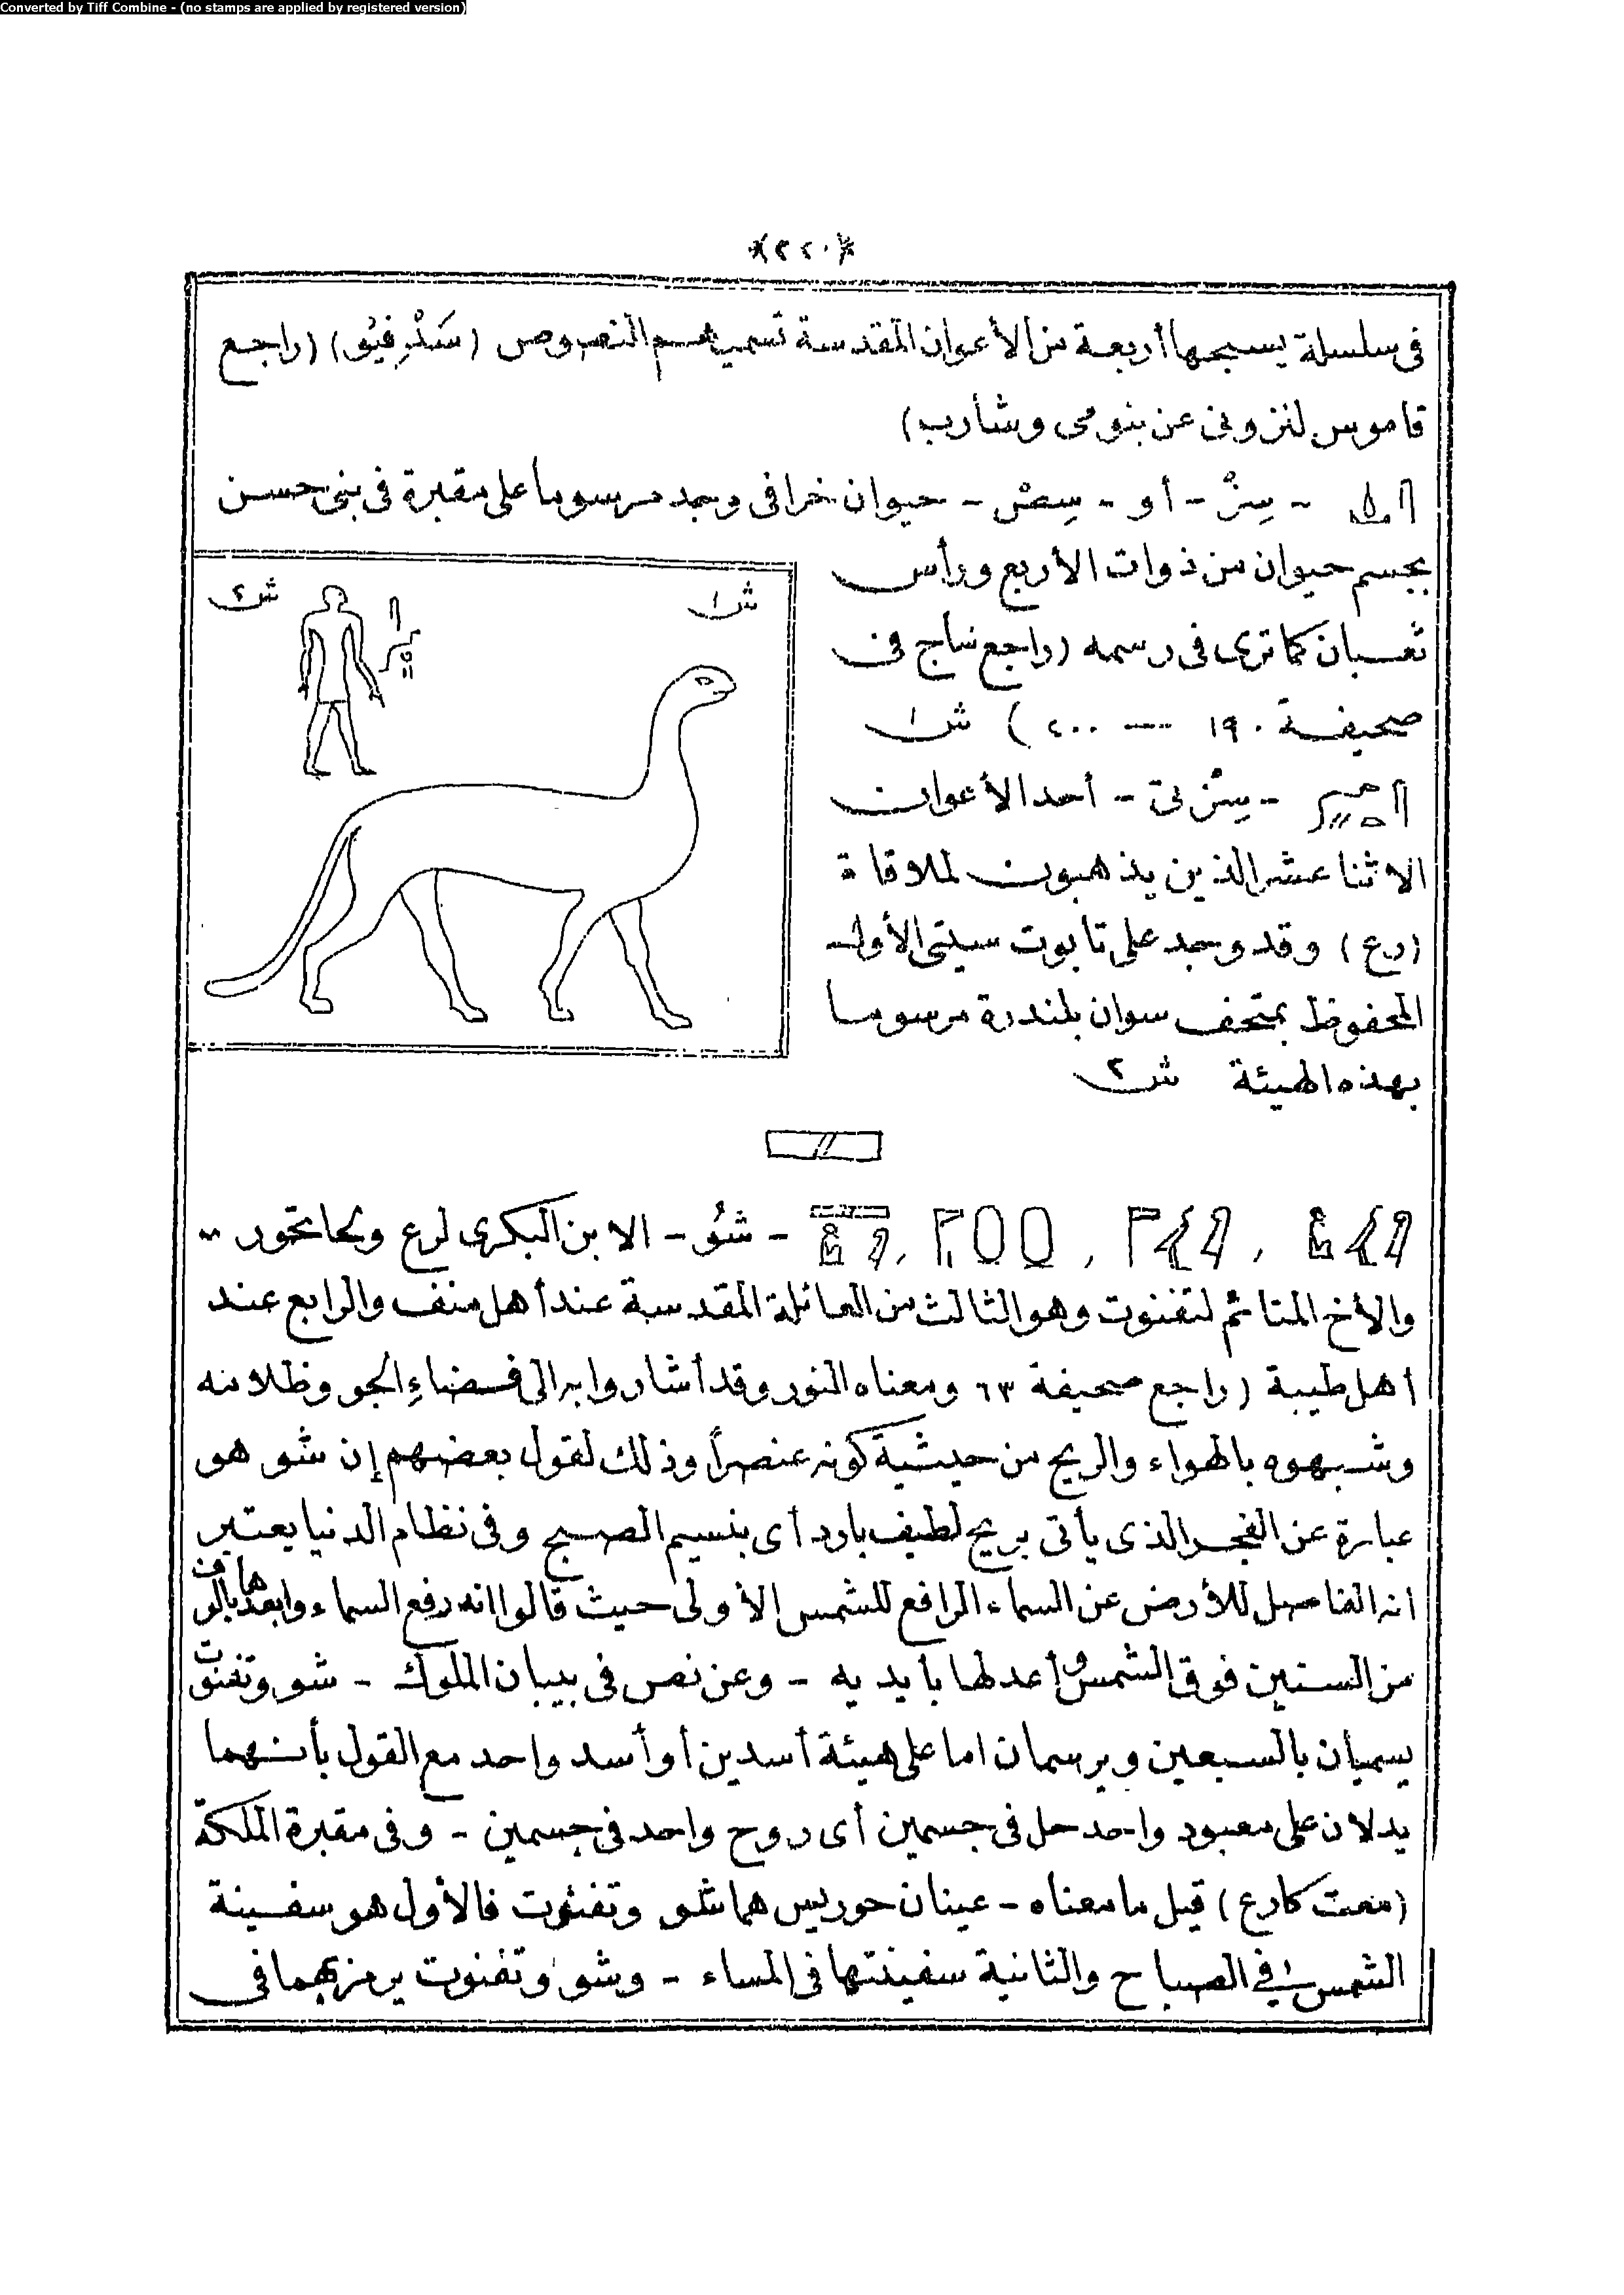 Converted by Tiff Combine - (no stamps are applied by registered version)
*(٢٢٠)*
فى سلسلة يسحبها أربعة من الأعوان المقدسة تسميهم النصوص (سَنْدِفِيُو) (راجع
قاموس لنزونى عن بنومى وشارب)
- سِنْ - أو - سِصْ - حيوان خرافى وجد مرسوما على مقبرة فى بنى حسن
بجسم حيوان من ذوات الأربع ورأس
ثعبان كما ترى فى رسمه (راجع ساج فى
صحيفة ١٩٠ --- ٢٠٠) ش١
- سِتْنِى - أحد الأعوان
الاثنا عشر الذين يذهبون لملاقاة
(رع) وقد وجد على تابوت سيتى الأول
المحفوظ بمتحف سوان بلندرة مرسوما
بهذه الهيئة ش٢
ش١
ش٢
- شُو - الابن البكرى لرع ولحاتحور
والأخ المتائم لتفنوت وهو الثالث من العائلة المقدسة عند أهل منف والرابع عند
أهل طيبة (راجع صحيفة ٦٣ ومعناه النور وقد أشاروا به الى فضاء الجو وظلامه
وشبهوه بالهواء والريح من حيثية كونه عنصراً وذلك لقول بعضهم إن شو هو
عبارة عن الفجر الذى يأتى بريح لطيف بارد أى بنسيم الصبح وفى نظام الدنيا يعتبر
انه الفاصل للأرض عن السماء الرافع للشمس الأولى حيث قالوا انه رفع السماء وابعدها بالوف
من السنين فوق الشمس وأعدلها بأيديه - وعن نص فى بيبان الملوك - شو وتفنوت
يسميان بالسبعين ويرسمان اما على هيئة أسدين أو أسد واحد مع القول بأنهما
يدلان على معبود واحد حل فى جسمين أى روح واحد فى جسمين - وفى مقبرة الملكة
(معت كارع) قيل ما معناه - عينان حوريس هما شو وتفنوت فالأول هو سفينة
الشمس فى الصباح والثانية سفينتها فى المساء - وشو وتفنوت يرمز بهما فى